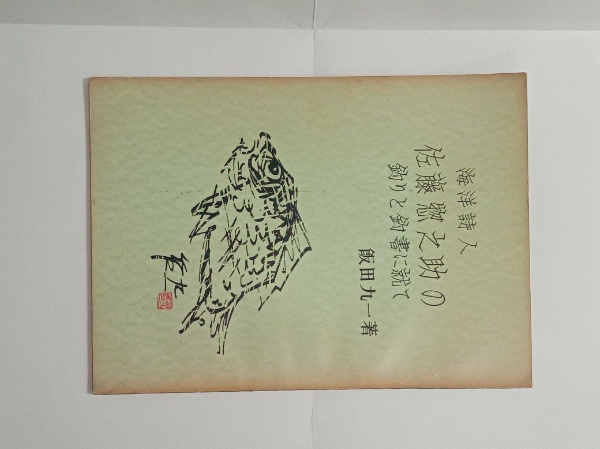 海洋詩人
佐藤惣之助の
釣りと釣書に就て
飯田九一著